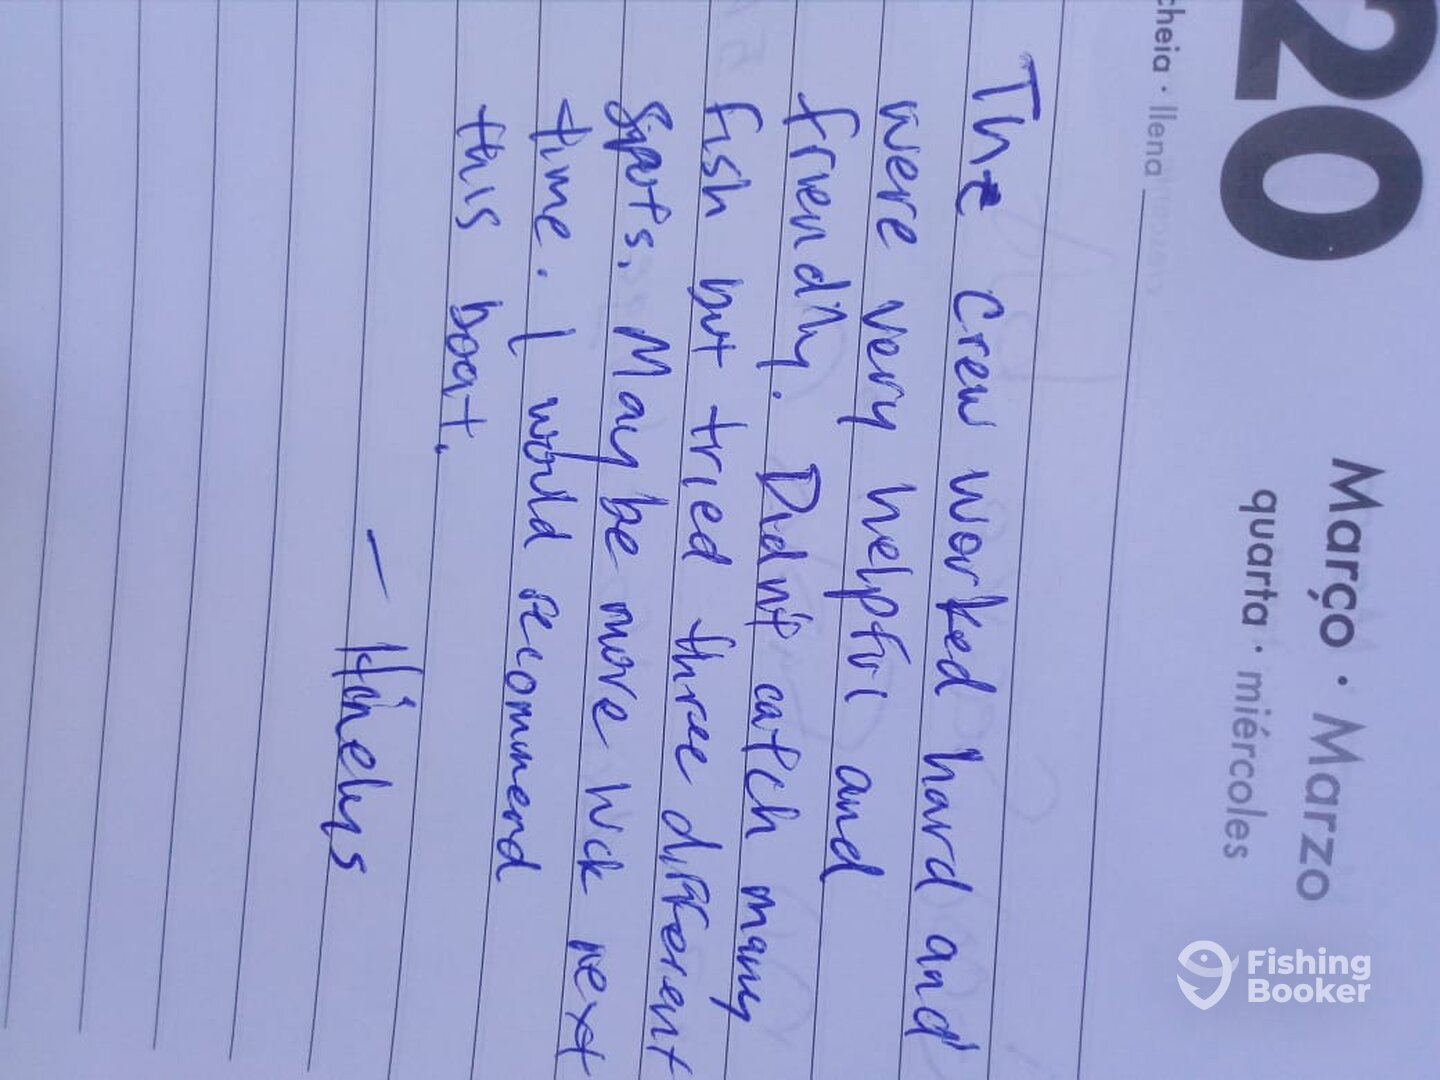 20
Março · Marzo
quarta · miércoles
cheia · llena
The crew worked hard and
were very helpful and
friendly. Didn't catch many
fish but tried three different
spots. Maybe more luck next
time. I would recommend
this boat.
Fishing
Booker